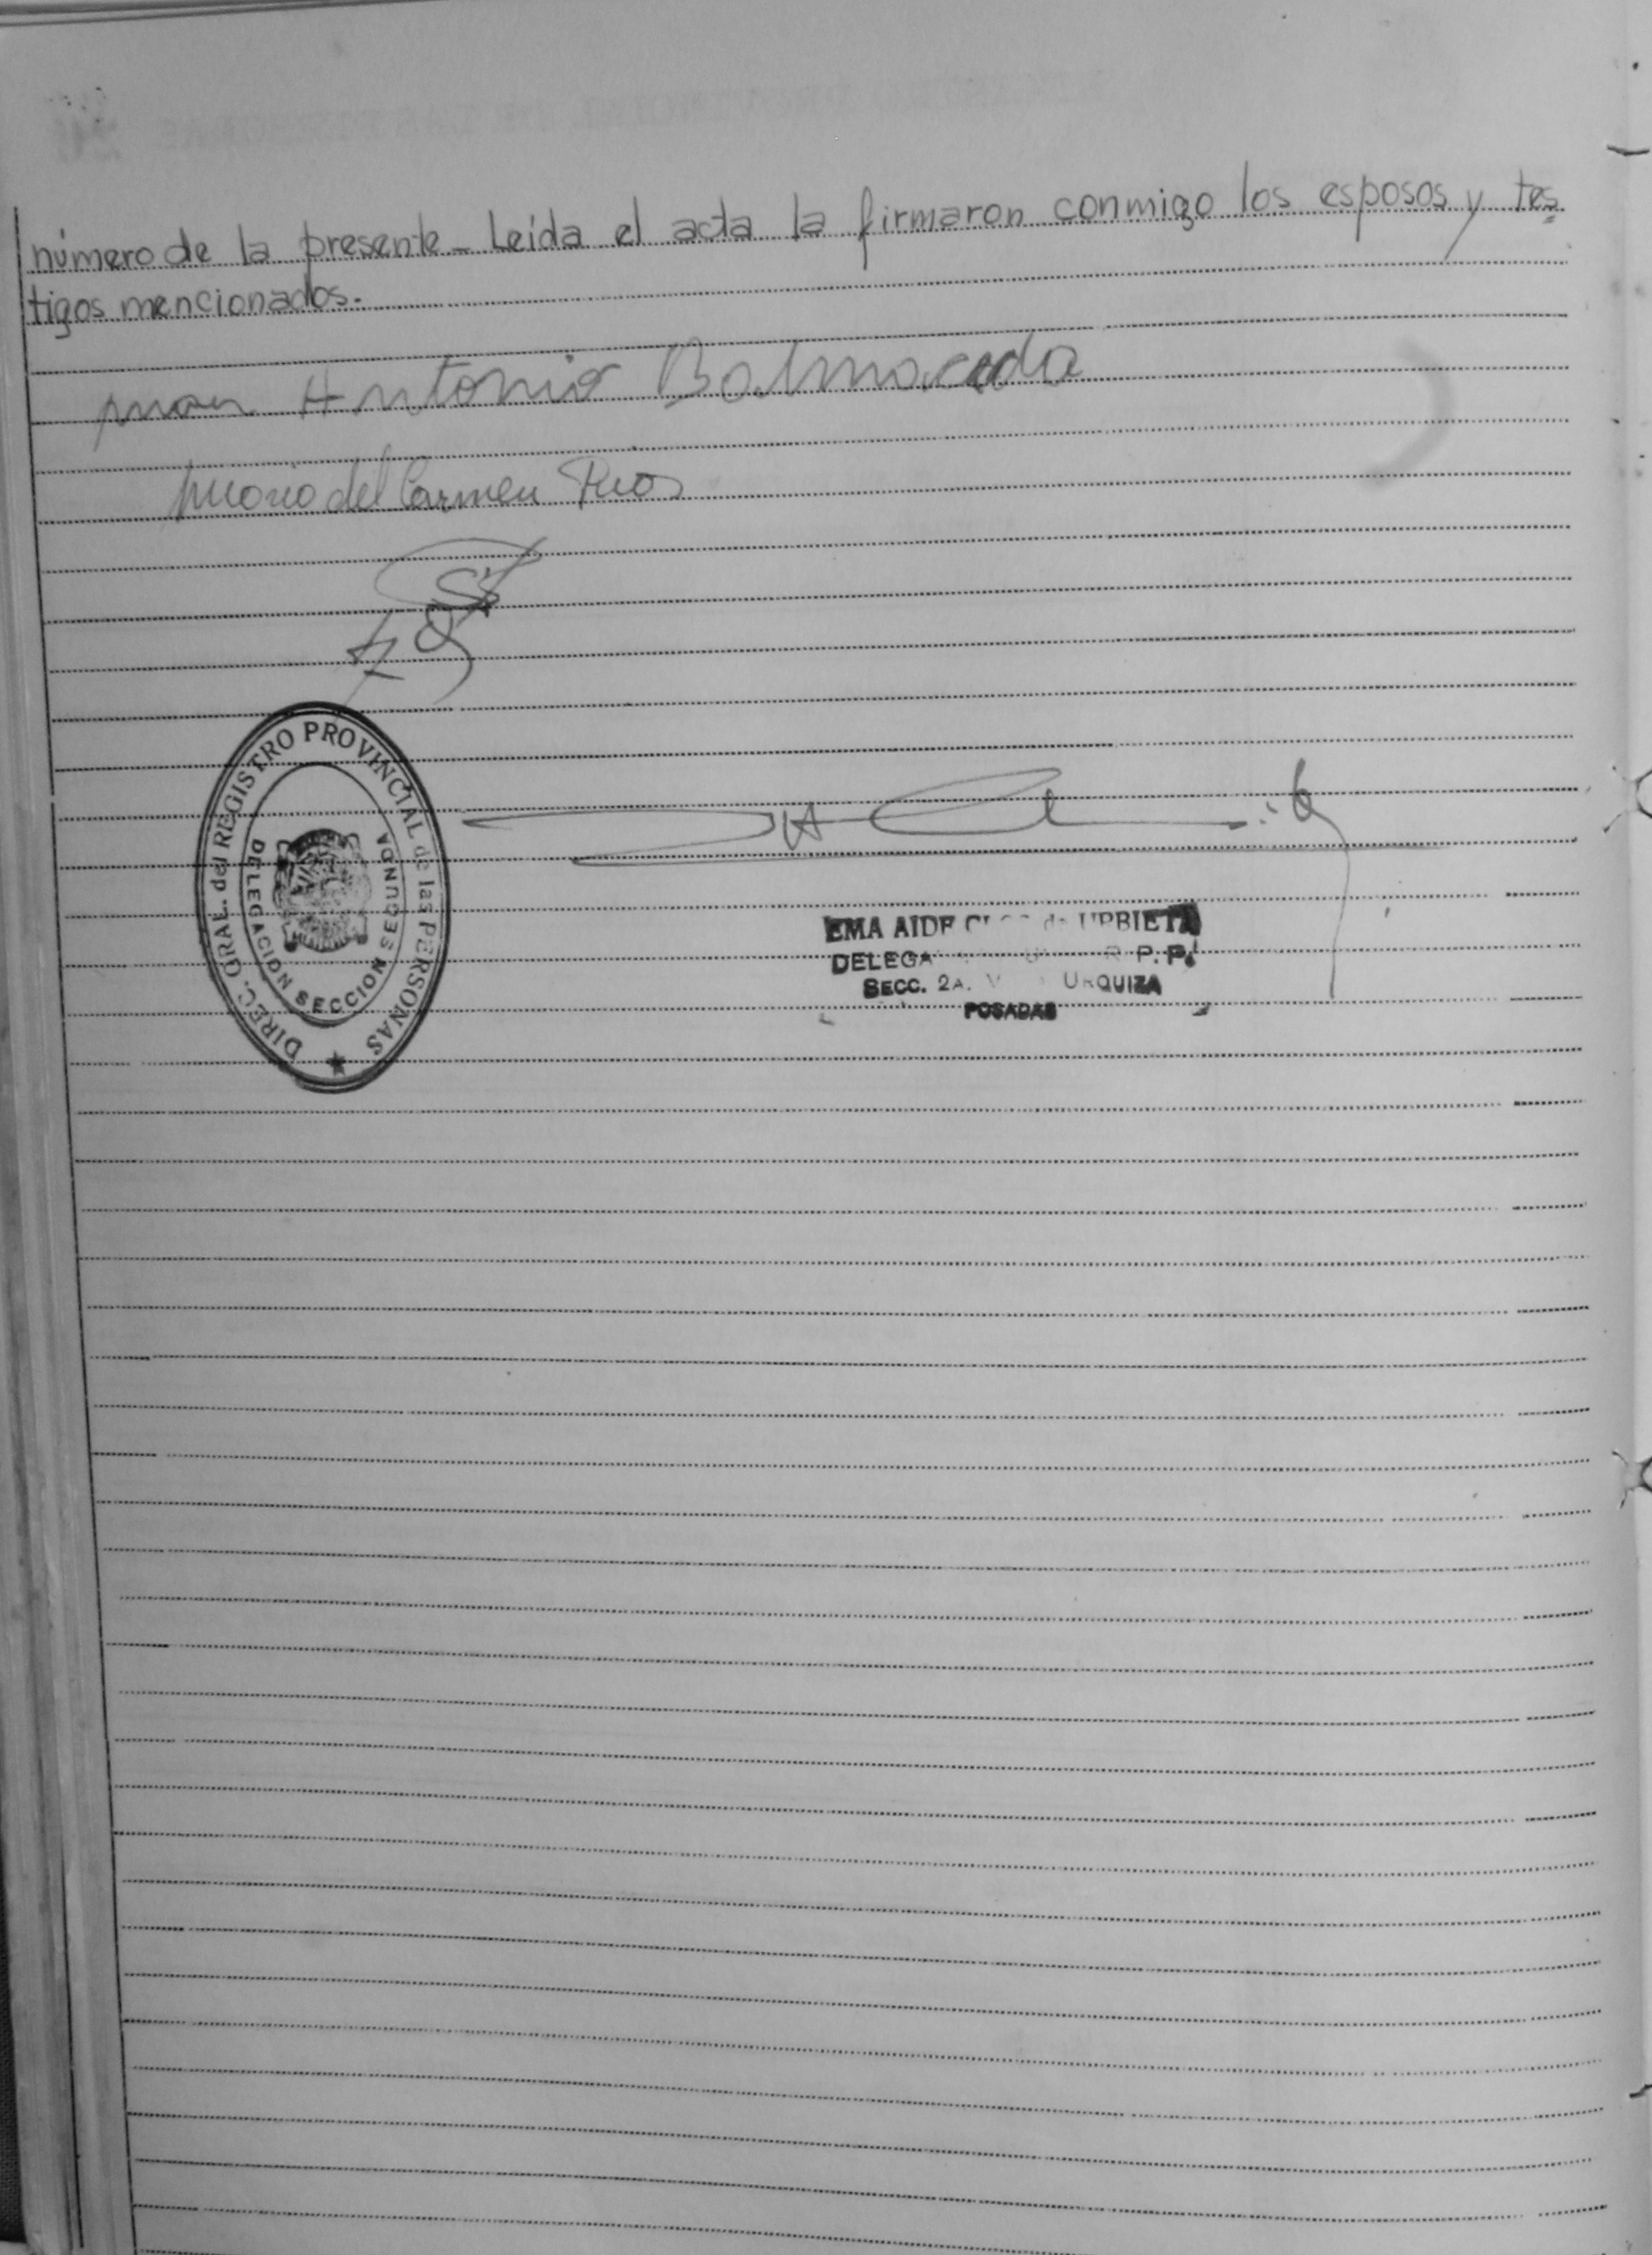 número de la presente_ Leída el acta la firmaron conmigo los esposos y tes
tigos mencionados.
Juan Antonio Balmaceda
Maria del Carmen Rios
DIREC. GRAL. del REGISTRO PROVINCIAL de las PERSONAS
DELEGACION SECCION SEGUNDA
EMA AIDE de URRIETA
DELEGA R P. P.
SECC. 2A. V URQUIZA
POSADAS